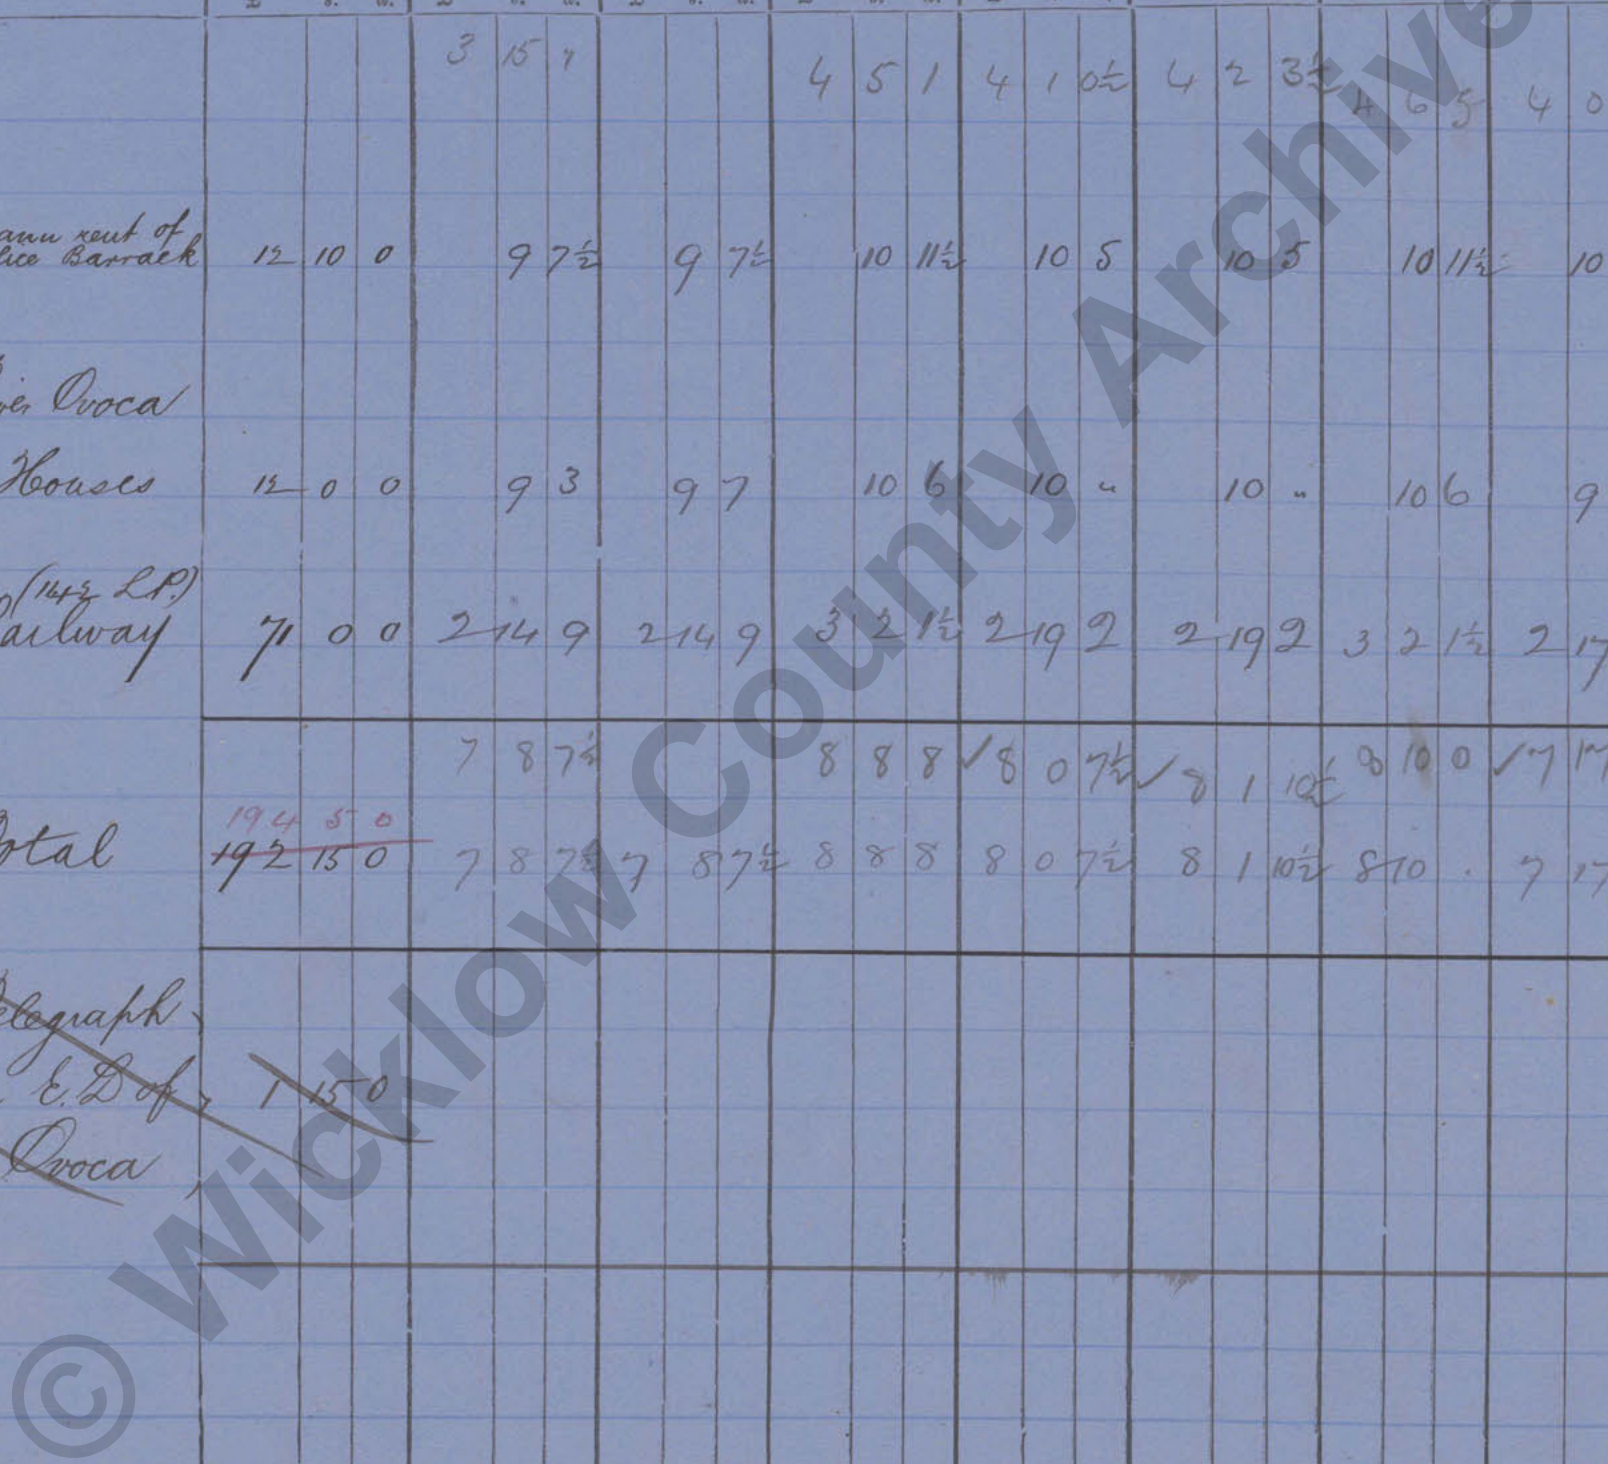 £ s. d. £ s. d. £ s. d. £ s. d.
3 15 7 4 5 1 4 1 0½ 4 2 3½ 4 6 5 4 0
ann rent of
lice Barrack 12 10 0 9 7½ 9 7½ 10 11½ 10 5 10 5 10 11½ 10
ver Ovoca
Houses 12 0 0 9 3 9 7 10 6 10 " 10 " 10 6 9
(14½ L.P.)
ailway 71 0 0 2 14 9 2 14 9 3 2 1½ 2 19 2 2 19 2 3 2 1½ 2 17
7 8 7½ 8 8 8 ✓ 8 0 7½ ✓ 8 1 10½ 8 10 0 ✓ 7 17
194 5 0
otal 192 15 0 7 8 7½ 7 8 7½ 8 8 8 8 0 7½ 8 1 10½ 8 10 . 7 17
elegraph
E.D of 1 15 0
Ovoca
© Wicklow County Archive